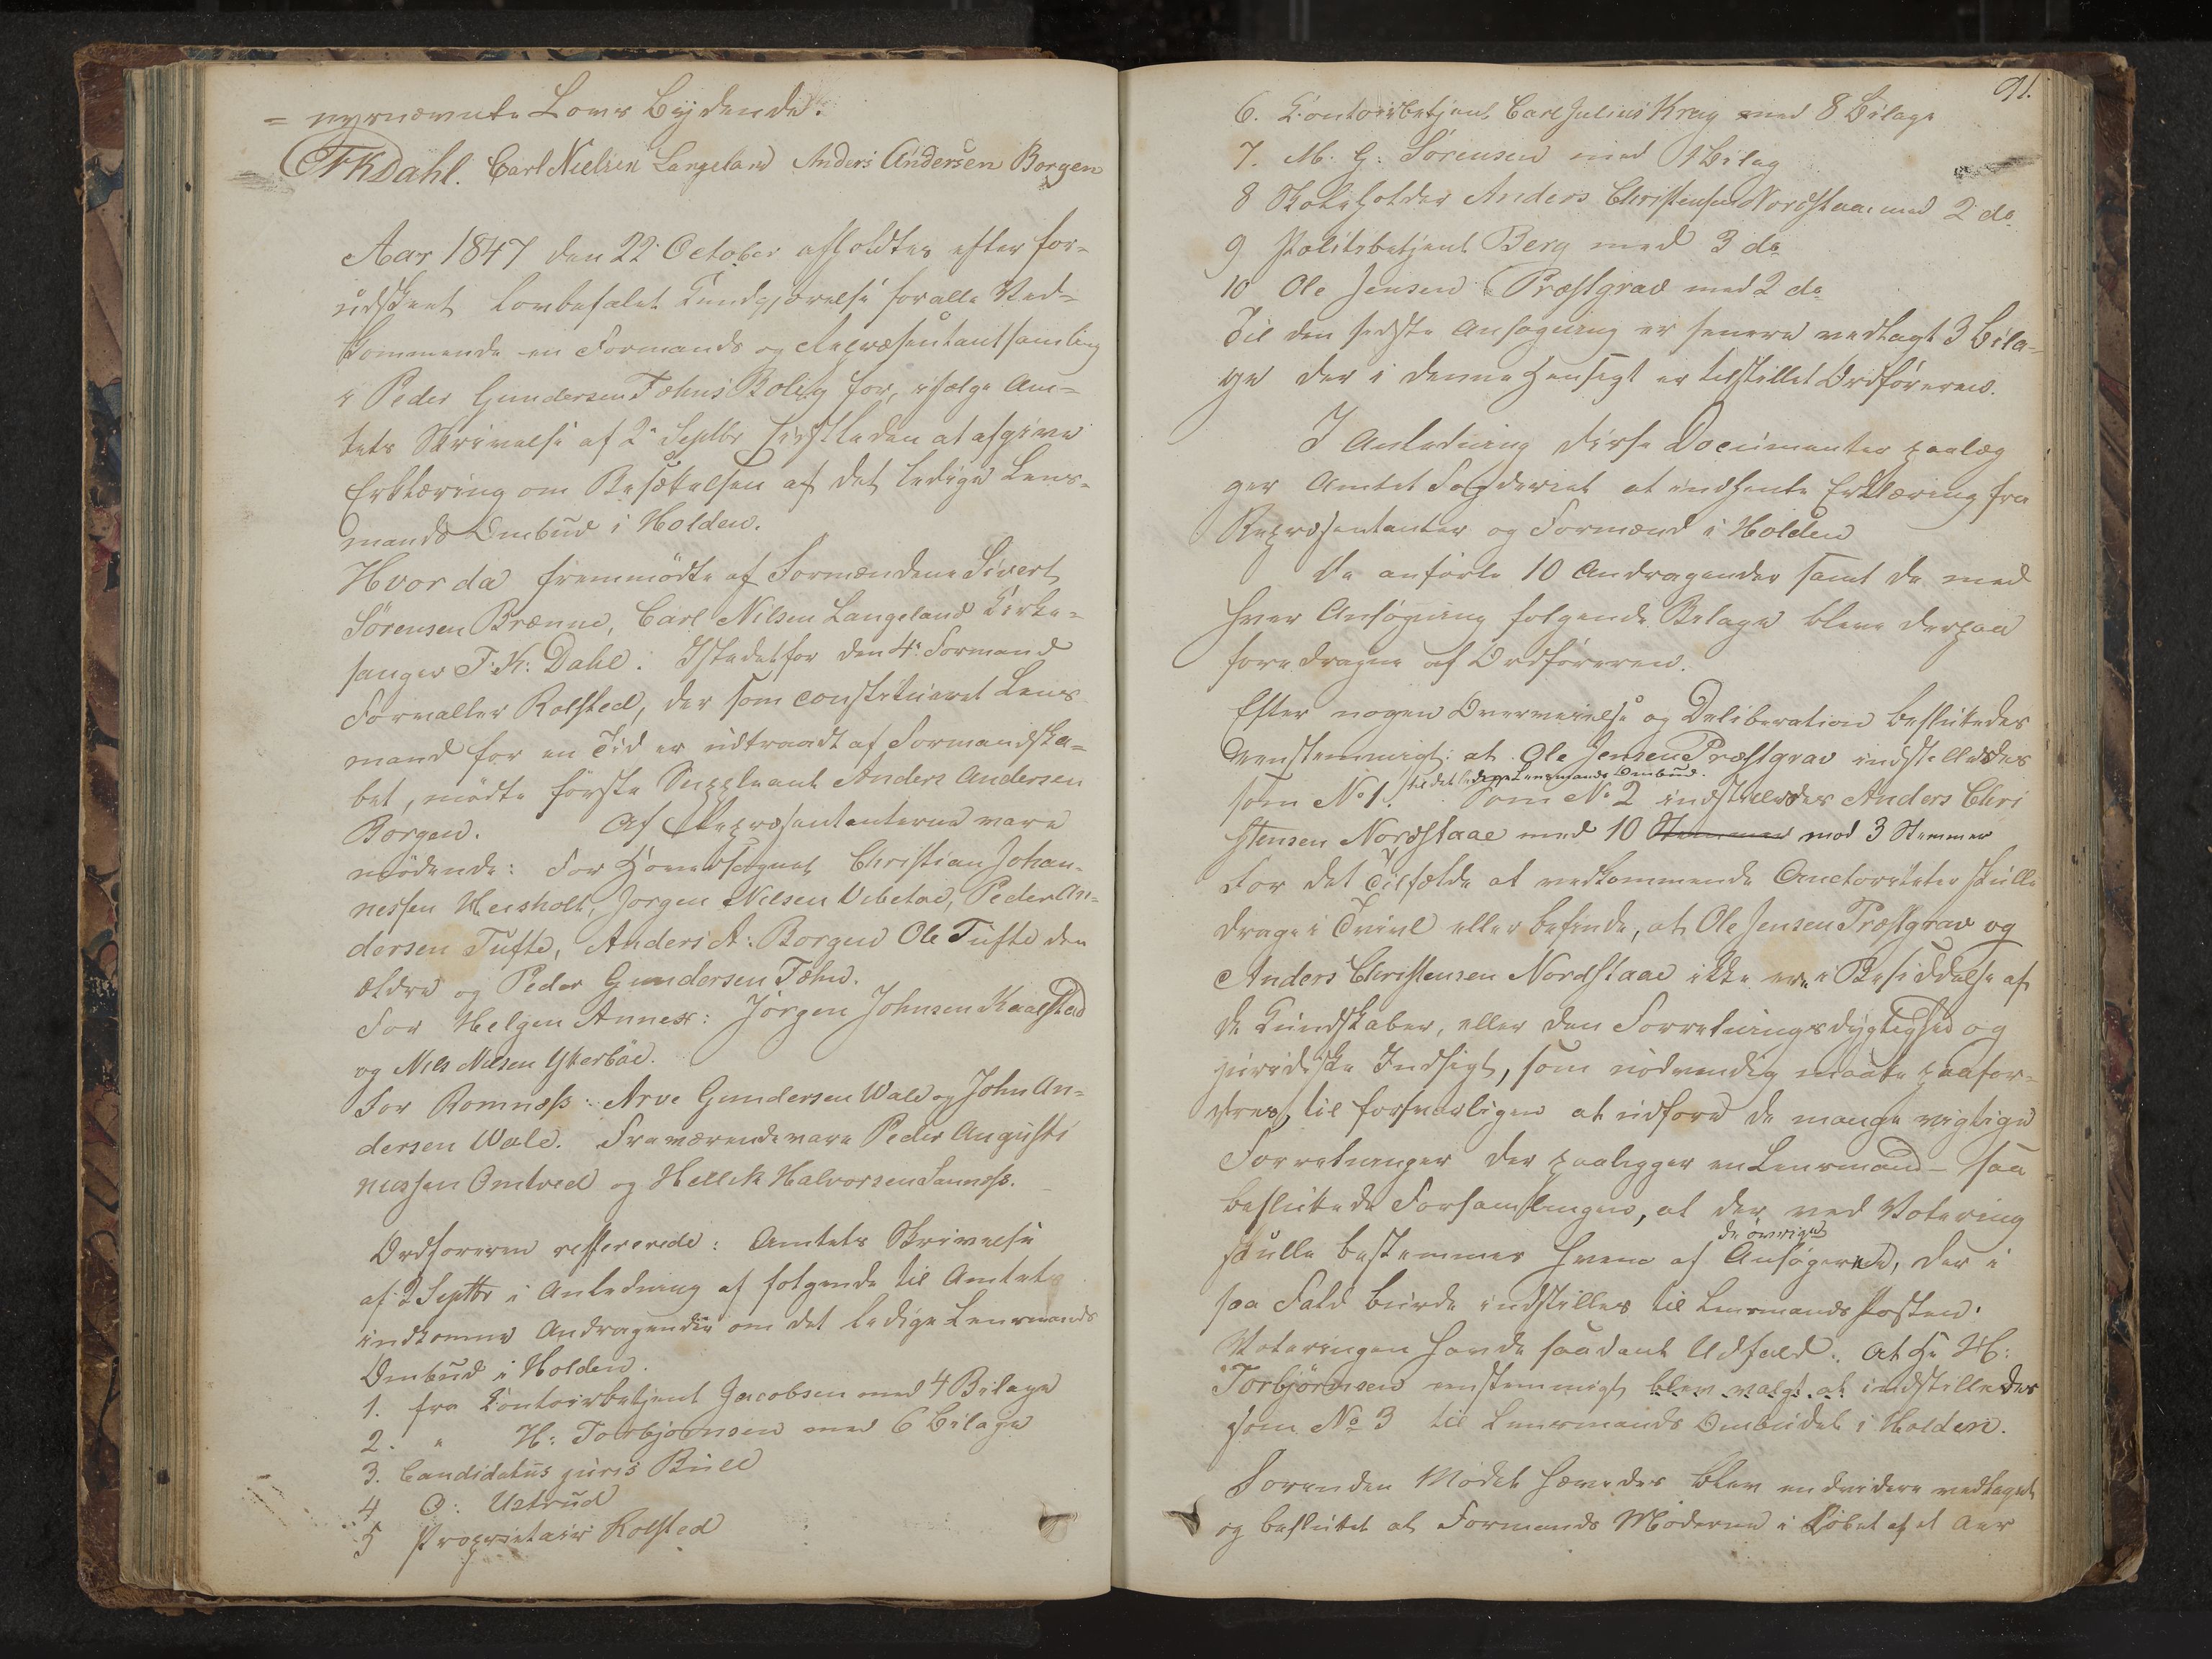 = nysnævnte Lovs Bydende.
FKDahl. Carl Nielsen Langeland Anders Andersen Borgen
Aar 1847 den 22 October afholdtes efter for-
udskeet lovbefalet Kundgjørelse for alle Ved-
kommende en Formands og Repræsentantsamling
i Peder Gundersen Tæhns Bolig for, ifølge Am-
tets Skrivelse af 2 Septbr sidstleden at afgive
Erklæring om Besættelsen af det ledige Lens-
mands Ombud i Holden.
Hvor da fremmødte af Formændene Sivert
Sörensen Brænne, Carl Nilsen Langeland Kirke-
sanger F: K: Dahl. Istedetfor den 4de Formand
Forvalter Rolsted, der som constitueret Lens
mand for en Tid er udtraadt af Formandska-
bet, mødte første Suppleant Anders Andersen
Borgen. Af Repræsentanterne vare
mødende: For Hovedsognet Christian Johan-
nessen Heisholt, Jørgen Nilsen Vibetoe, Peder An-
dersen Tufte, Anders A: Borgen Ole Tufte den
ældre og Peder Gundersen Tæhn.
For Helgen Annex: Jörgen Johnsen Kaasstad
og Nils Nilsen Ytterböe.
For Romnæss: Arve Gundersen Wale og John An-
dersen Wale. Fraværende vare Peder Augusti
nussen Omtved og Hellik Halvorsen Sanness.
Ordføreren reffererede: Amtets Skrivelse
af 2 Septbr i Anledning af følgende til Amtet
indkomne Andragender om det ledige Lensmands
Ombud i Holden.
1. fra Contoirbetjent Jacobsen med 4 Bilage
2. " H: Torbjörnsen med 6 Bilage
3. Candidatus juris Bull
4 O: Ustrud
5 Proprietair Rolsted
91.
6. Contoirbetjent Carl Julius Krag med 8 Bilage
7. M: G: Sörensen med 1 Bilag
8 Skoleholder Anders Christensen Nordstaae med 2 do
9 Politibetjent Berg med 3 do
10 Ole Jensen Præstgrav med 2 do
Til den sidste Ansøgning er senere vedlagt 3 Bila-
ge der i denne Hensigt er tilstillet Ordføreren.
I Anledning disse Documenter paalæg
ger Amtet Fogderiet at indhente Erklæring fra
Repræsentanter og Formænd i Holden
De anførte 10 Andragender samt de med
hver Ansøgning følgende Bilage bleve derpaa
foredragne af Ordføreren.
Efter nogen Overveielse og Deliberation besluttedes
eenstemmigt: at Ole Jensen Præstgrav indstilledes
som No 1. til det ledige Lensmands Ombud. Som No 2 indstilledes Anders Chri
stensen Nordstaae med 10 Stemmer mod 3 Stemmer
For det Tilfælde at vedkommende Auctoriteter skulle
drage i Tvivl eller befinde, at Ole Jensen Præstgrav og
Anders Christensen Nordstaae ikke ere i Besiddelse af
de Kundskaber, eller den Forretningsdygtighed og
juridiske Indsigt, som nødvendig maatte paafor-
dres, til forsvarligen at udføre de mange vigtige
Forretninger der paaligger en Lensmand – saa
besluttede Forsamlingen, at der ved Votering
skulle bestemmes hvem af de øvrige Ansøgere, der i
saa Fald burde indstilles til Lensmands Posten.
Voteringen havde saadant Udfald. At Hr H:
Torbjörnsen eenstemmigt blev valgt at indstilledes
som No 3 til Lensmands Ombudet i Holden.
Forinden Mødet hævedes blev endvidere vedtaget
og besluttet at Formands Møderne i Løbet af et Aar